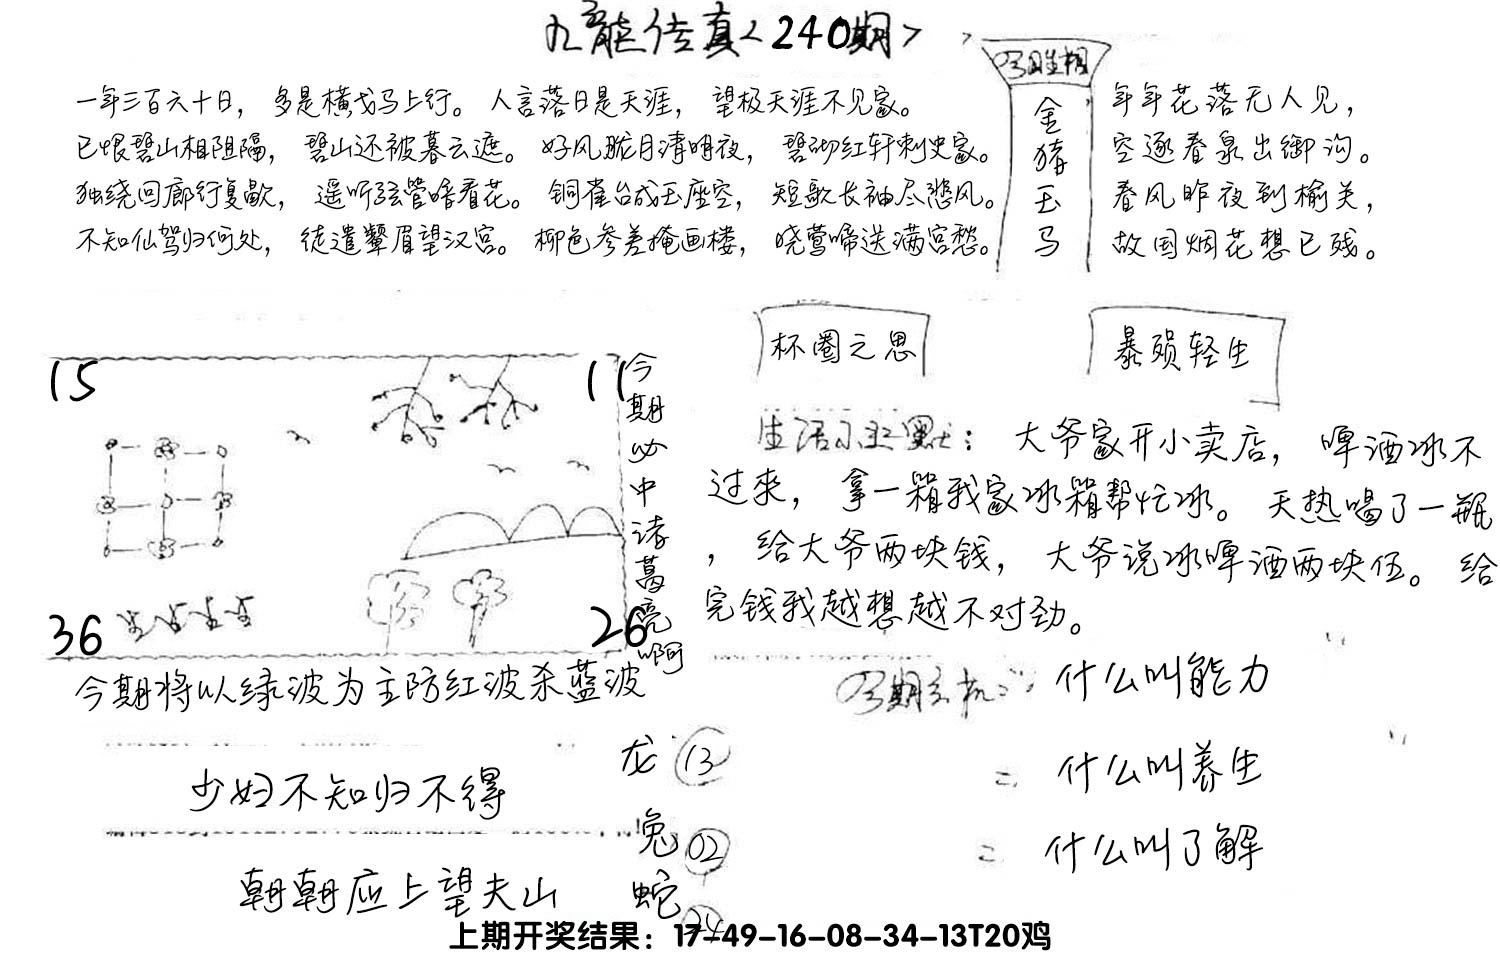 九龙传真<240期>
一年三百六十日，多是横戈马上行。人言落日是天涯，望极天涯不见家。
已恨碧山相阻隔，碧山还被暮云遮。好风胧月清明夜，碧砌红轩刺史家。
独绕回廊行复歇，遥听弦管暗看花。铜雀台成玉座空，短歌长袖尽悲风。
不知仙驾归何处，徒遣颦眉望汉宫。柳色参差掩画楼，晓莺啼送满宫愁。
金
猪
玉
马
年年花落无人见，
空逐春泉出御沟。
春风昨夜到榆关，
故国烟花想已残。
杯圈之思
暴殒轻生
15
11
36
26
今期必中诸葛亮啊
今期将以绿波为主防红波杀蓝波
生活小幽默：大爷家开小卖店，啤酒冰不
过来，拿一箱我家冰箱帮忙冰。天热喝了一瓶
，给大爷两块钱，大爷说冰啤酒两块伍。给
完钱我越想越不对劲。
今期玄机：什么叫能力
= 什么叫养生
= 什么叫了解
少妇不知归不得
朝朝应上望夫山
龙 13
兔 02
蛇
上期开奖结果：17-49-16-08-34-13T20鸡